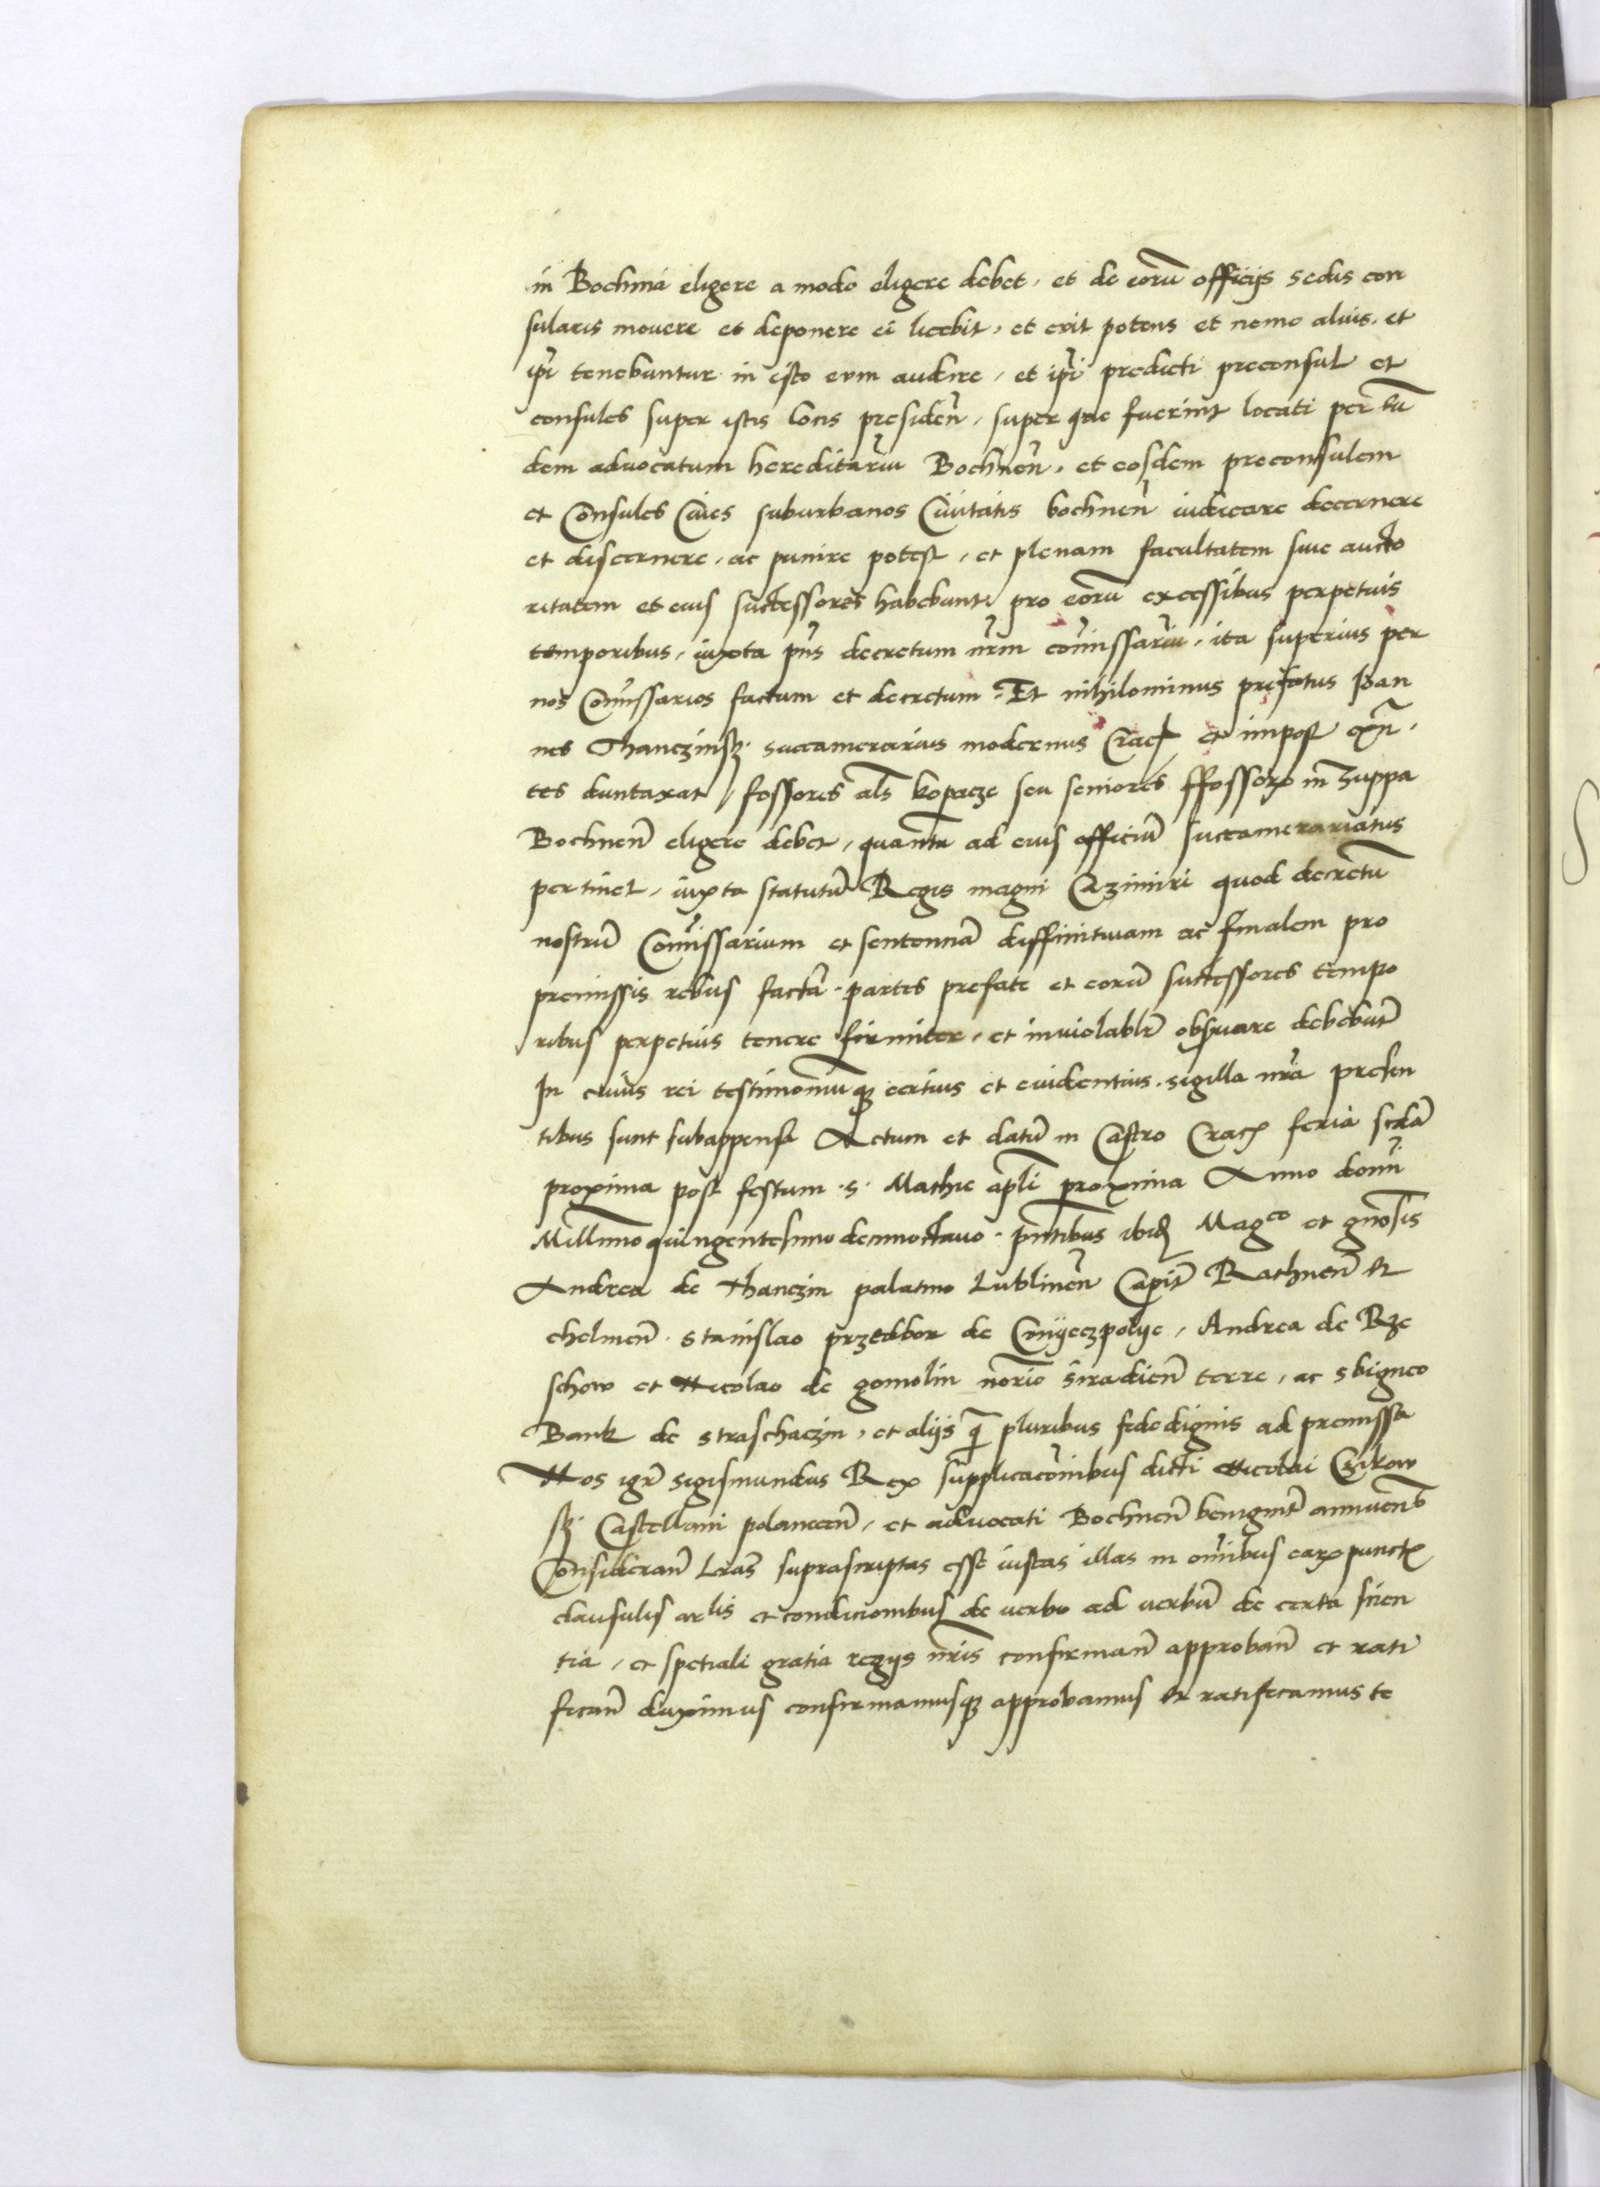 in Bochnia eligere a modo eligere debet, et de eorũ officijs sedis con
sularis mouere et deponere ei licebit, et erit potens et nemo alius, et
ip̃i tenebuntur in isto eum audire, et ip̃i predicti preconsul et
consules super istis locis presiden̄, super que fuerint locati per eũ
dem aduocatum hereditariũ Bochnen̄, et eosdem preconsulem
et Consules Ciues suburbanos Ciuitatis bochnen̄ iudicare decernere
et discernere, ac punire potest, et plenam facultatem siue aucto
ritatem et eius successores habebunt pro eorũ excessibus perpetuis
temporibus, iuxta pn̄s decretum nr̄m com̄issariũ, ita superius per
nos Com̄issarios factum et decretum. Et nihilominus prefatus Ioan
nes Thanczinsky succamerarius modernus Crac̄ et impost exn̄,
tes duntaxat fossores al̄s kopacze seu seniores ffossorꝝ in Zuppa
Bochnen̄ eligere debet, quantũ ad eius officiũ succamerariatus
pertinet, iuxta statutũ Regis magni Cazimiri quod decretũ
nostrũ Com̄issarium et sentenciã diffinitiuam ac finalem pro
premissis rebus factã. partes prefate et eorũ successores tempo
ribus perpetuis tenere firmiter, et inuiolabl̄r obseruare debebūt
In cuius rei testimoniũqꝫ certius et euidentius. sigilla nr̄a presen
tibus sunt subappensa Actum et datũ in Castro Crac̄ feria scdã
proxima post festum .s. Mathie ap̄li proxima Anno domĩ
Millimo quingentesimo decimooctauo. pn̄tibus ibid̄ Mag^co et gn̄osis
Andrea de Thanczin palatino Lublinen̄ Capit̄ Rathnen̄ et
chelmen̄. Stanislao przedbor de Cunyeczpolye, Andrea de Rze
schow et Nicolao de gomolin notario Siradien̄ terre, ac Sbigneo
Bank de Straschaczin, et alijs q̃ pluribus fidedignis ad premissa
Nos igr̄ Sigismundus Rex supplicacõnibus dicti Nicolai Czikow
sky Castellani polanecen̄, et aduocati Bochnen̄ benignit̄ annuen̄
Consideran̄ Lr̄as suprascriptas esse iustas illas in om̄ibus earꝝ punctꝭ
clausulis ar^lis et condicionibus de uerbo ad uerbũ de certa scien
tia, et speciali gratia regijs nr̄is confirman̄ approban̄ et rati
fican̄ duximus confirmamusqꝫ approbamus et ratificamus te